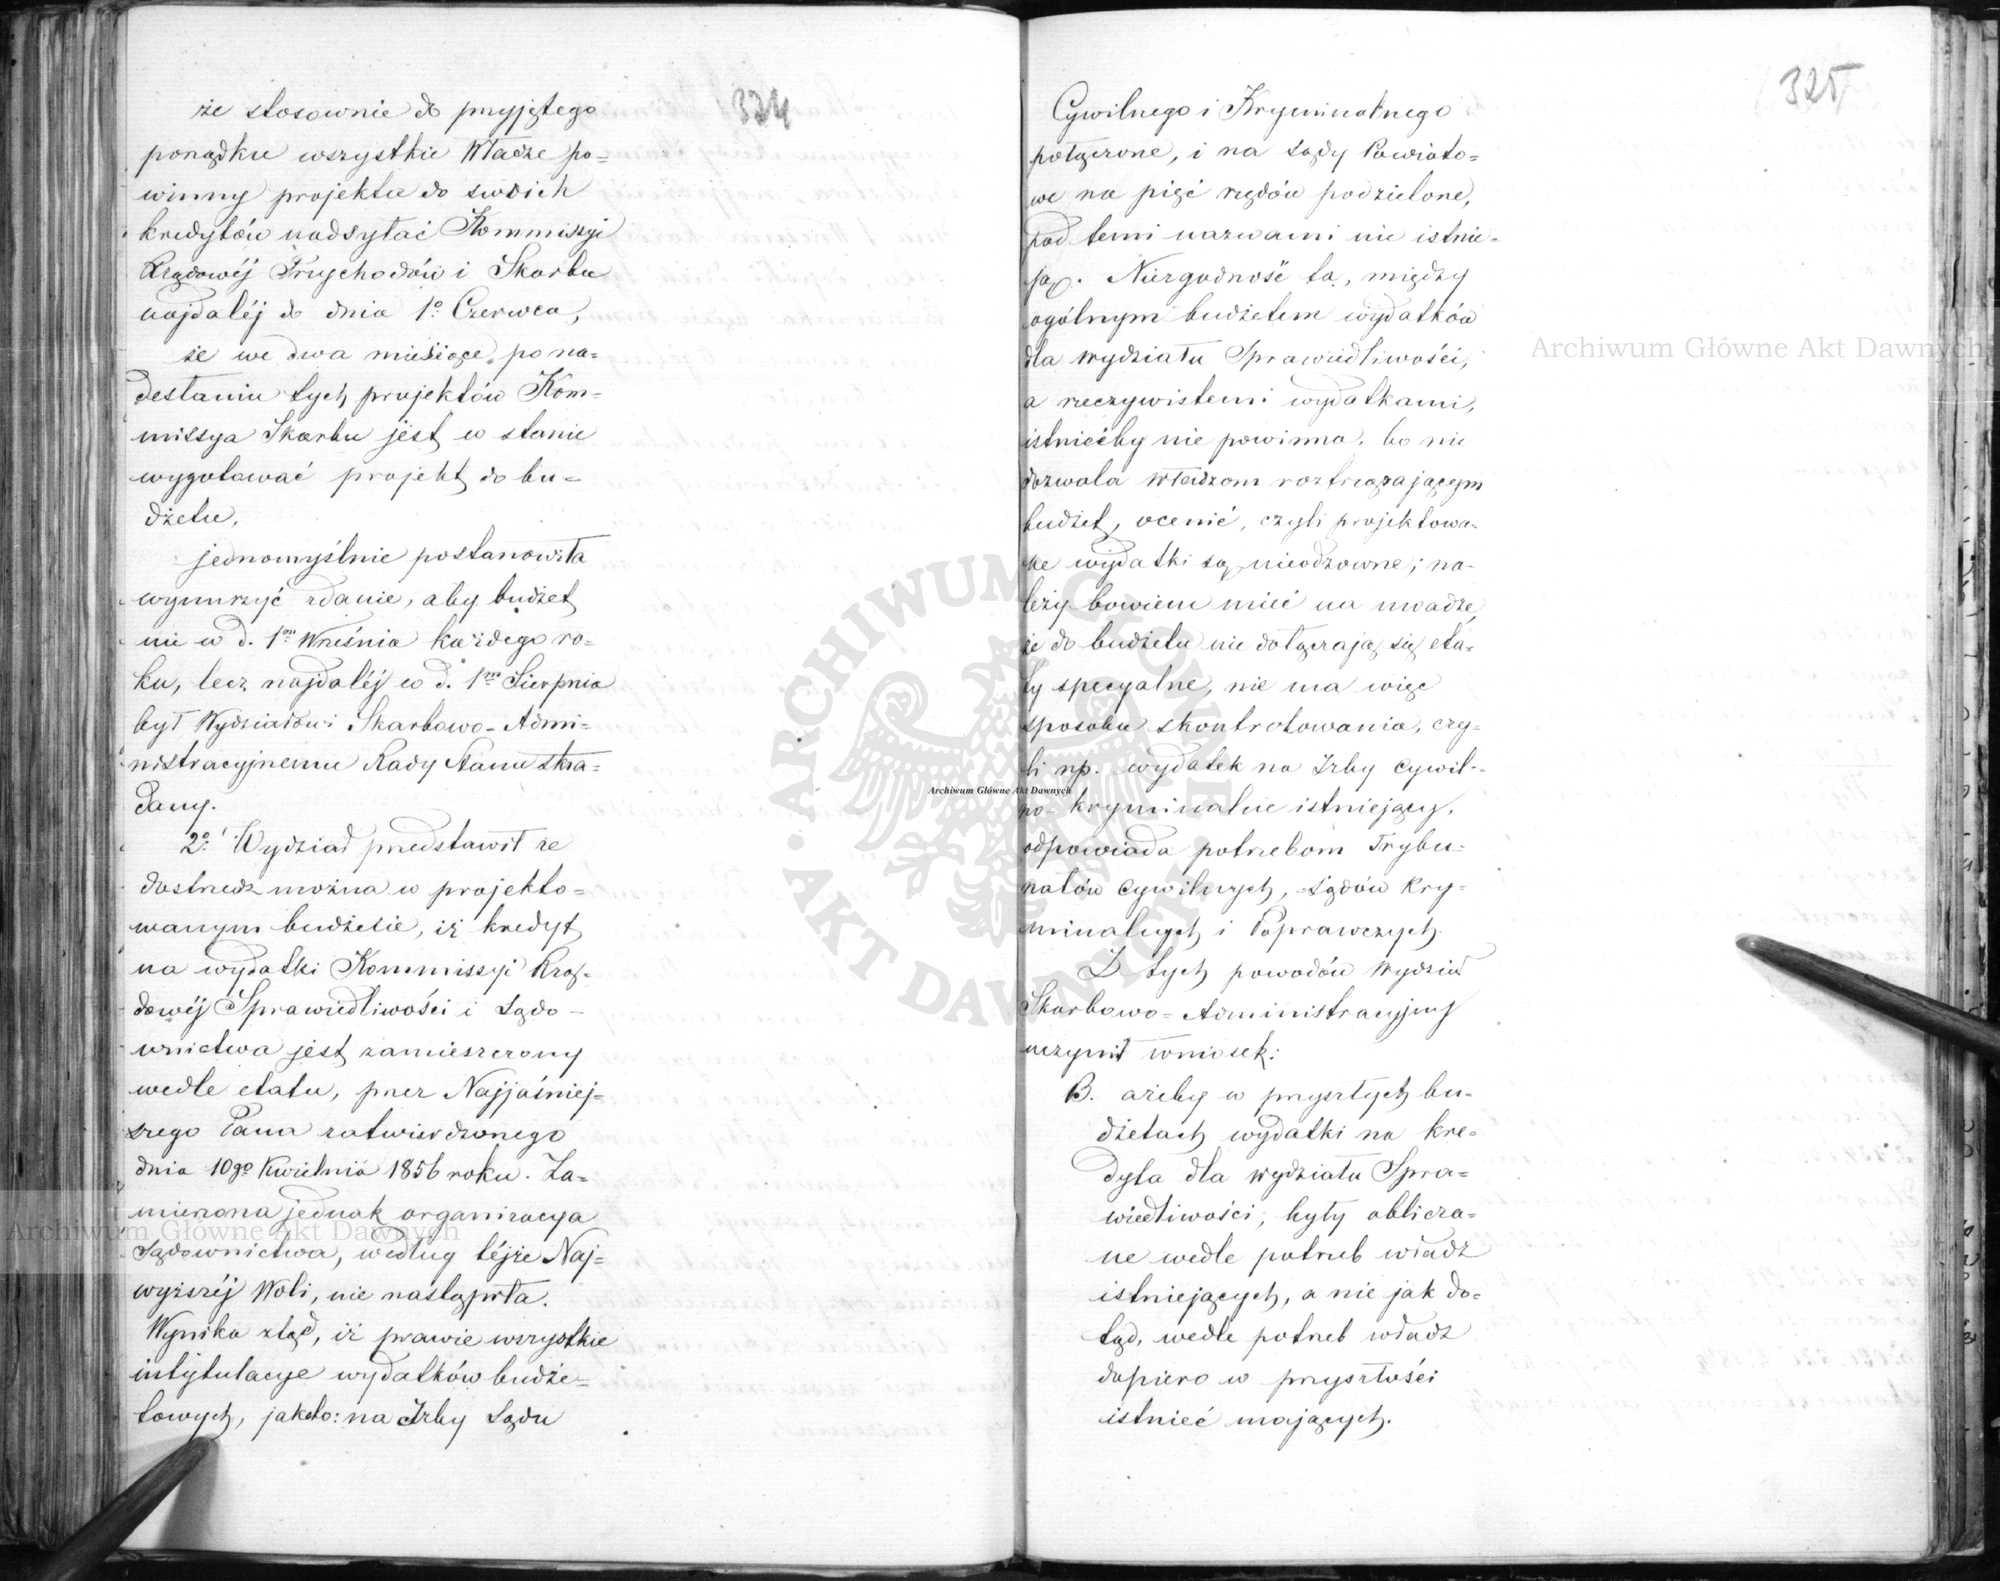 334
że stosownie do przyjętego
porządku wszystkie Władze po=
winny projekta do swoich
kredytów nadsyłać Kommissyi
Rządowéj Przychodów i Skarbu
najdaléj do dnia 1º Czerwca,
że we dwa miesiące po na=
desłaniu tych projektów Kom=
missya Skarbu jest w stanie
wygotować projekt do bu=
dżetu,
jednomyślnie postanowiła
wynurzyć zdanie, aby budżet
nie w d. 1m Września każdego ro=
ku, lecz najdaléj w d. 1m Sierpnia
był Wydziałowi Skarbowo-Admi=
nistracyjnemu Rady Stanu skła=
dany.
2º Wydział przedstawił że
dostrzedz można w projekto=
wanym budżecie, iż kredyt
na wydatki Kommissyi Rzą=
dowéj Sprawiedliwości i Sądo=
wnictwa jest zamieszczony
wedle etatu, przez Najjaśniej=
szego Pana zatwierdzonego
dnia 10go Kwietnia 1856 roku. Za=
mierzona jednak organizacya
Sądownictwa, według téjże Naj=
wyższéj Woli, nie nastąpiła.
Wynika ztąd, iż prawie wszystkie
intytulacye wydatków budże=
towych, jakoto: na Izby Sądu
325
Cywilnego i Kryminalnego
połączone, i na Sądy Powiato=
we na pięć rzędów podzielone,
pod temi nazwami nie istnie=
ją. Niezgodność ta, między
ogólnym budżetem wydatków
dla Wydziału Sprawiedliwości,
a rzeczywistemi wydatkami,
istniećby nie powinna, bo nie
dozwala Władzom roztrząsającym
budżet, ocenić, czyli projektowa=
ne wydatki są nieodzowne; na=
leży bowiem mieć na uwadze,
że do budżetu nie dołączają się eta=
ty specyalne, nie ma więc
sposobu skontrolowania, czy=
li np. wydatek na Izby Cywil=
no-kryminalne istniejący,
odpowiada potrzebom Trybu=
nałów Cywilnych, Sądów Kry=
minalnych i Poprawczych.
Z tych powodów Wydział
Skarbowo=Administracyjny
uczynił wniosek:
B. ażeby w przyszłych bu=
dżetach wydatki na kre=
dyta dla Wydziału Spra=
wiedliwości, były oblicza=
ne wedle potrzeb władz
istniejących, a nie jak do=
tąd, wedle potrzeb władz
dopiero w przyszłości
istnieć mających.
Archiwum Główne Akt Dawnych
Archiwum Główne Akt Dawnych
Archiwum Główne Akt Dawnych
ARCHIWUM GŁÓWNE • AKT DAWNYCH •